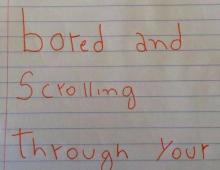 bored and
Scrolling
through your